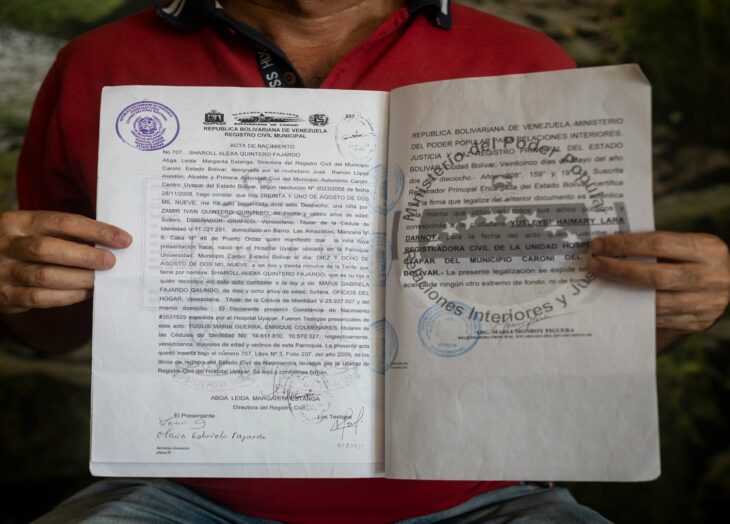 ALCALDIA SOCIALISTA
BOLIVARIANA DE CARONI
207
REPUBLICA BOLIVARIANA DE VENEZUELA
REGISTRO CIVIL MUNICIPAL
ACTA DE NACIMIENTO
No 707. SHAROLL ALEXA QUINTERO FAJARDO
Abga. Leida Margarita Estanga, Directora del Registro Civil del Municipio
Caroní, Estado Bolívar, designada por el ciudadano José Ramón López
Rondón, Alcalde y Primera Autoridad Civil del Municipio Autónomo Caroní,
Centro Uyapar del Estado Bolívar, según resolución Nº 0023/2008 de fecha
28/11/2008, hago constar: que hoy TREINTA Y UNO DE AGOSTO DE DOS
MIL NUEVE, me ha sido presentada ante este Despacho, una niña por
ZAMIR IVAN QUINTERO QUINTERO, de treinta y años de edad,
Soltero, DISEÑADOR GRAFICO, Venezolano, Titular de la Cédula de
Identidad domiciliado en Barrio Las Amazonas, Manzana Nº
9, Casa Nº 46 de Puerto Ordaz quién manifestó que la niña cuya
presentación hace, nació en el Hospital Uyapar ubicado en la Parroquia
Universidad, Municipio Caroní Estado Bolívar el día DIEZ Y OCHO DE
AGOSTO DE DOS MIL NUEVE; a las dos y treinta minutos de la Tarde, que
tiene por nombre SHAROLL ALEXA QUINTERO FAJARDO, que es su hija a
quién reconoce en este acto conforme a la ley y de MARIA GABRIELA
FAJARDO GALINDO, de diez y ocho años de edad, Soltera, OFICIOS DEL
HOGAR, Venezolana, Titular de la Cédula de Identidad V-25.937.607 y del
mismo domicilio. El Declarante presentó Constancia de Nacimiento
#3531829 expedida por el Hospital Uyapar. Fueron Testigos presenciales de
este acto: YUGLIS MARIA GUERRA, ENRIQUE COLMENARES, titulares de
las Cédulas de Identidad No: 14.611.810, 10.570.327, respectivamente,
venezolanos, mayores de edad y vecinos de esta Parroquia. La presente acta
quedó inserta bajo el número 707, Libro Nº 3, Folio 207, del año 2009, de los
libros de registro del Estado Civil de Nacimientos llevados por la Unidad de
Registro Civil del Hospital Uyapar. Se leyó y conformes firman.
ABGA. LEIDA MARGARITA ESTANGA
Directora del Registro Civil
El Presentante
Los Testigos
Maria Gabriela Fajardo
Servicio Gratuito
REPUBLICA BOLIVARIANA DE VENEZUELA.-MINISTERIO
DEL PODER POPULAR PARA RELACIONES INTERIORES,
JUSTICIA Y PAZ-REGISTRO PRINCIPAL DEL ESTADO
BOLIVAR, Ciudad Bolívar, Veinticinco de Mayo del año
dos mil dieciocho.- Años "208°, 159° y 19°" El Suscrito
Registrador Principal Encargada del Estado Bolívar Certifica
que la firma que legaliza del anterior documento es auténtica
la misma que utiliza en todos sus actos
corresponde a la ciudadana YUSLEYE HAIMARY LARA
DARNOTT, para la fecha del acto quien suscribe
REGISTRADORA CIVIL DE LA UNIDAD HOSPITAL
UYAPAR DEL MUNICIPIO CARONI DEL
BOLIVAR.- La presente legalización se expide sin
acerca de ningún otro extremo de fondo, ni de
ABG. MARIA MONROY FIGUERA
REGISTRADORA PRINCIPAL ENCARGADA DEL ESTADO BOLIVAR
Ministerio del Poder Popular
Relaciones Interiores y Ju